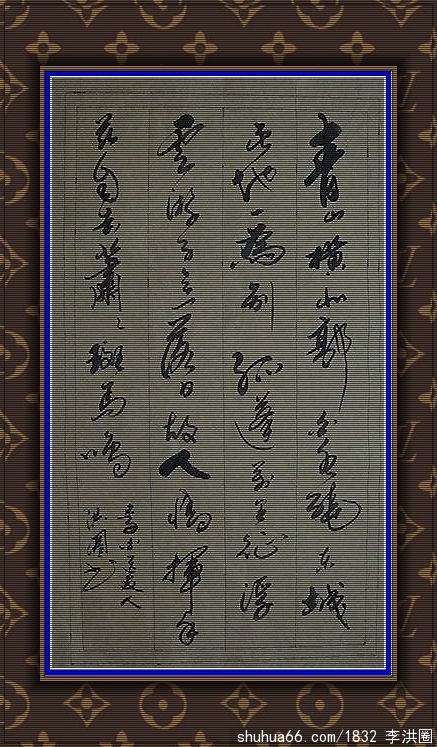 青山橫北郭白水繞东城
此地一為别孤蓬万里征浮
雲游子意落日故人情揮手
兹自去蕭々斑馬鳴
李白送友人
洪圈书
shuhua66.com/1832 李洪圈